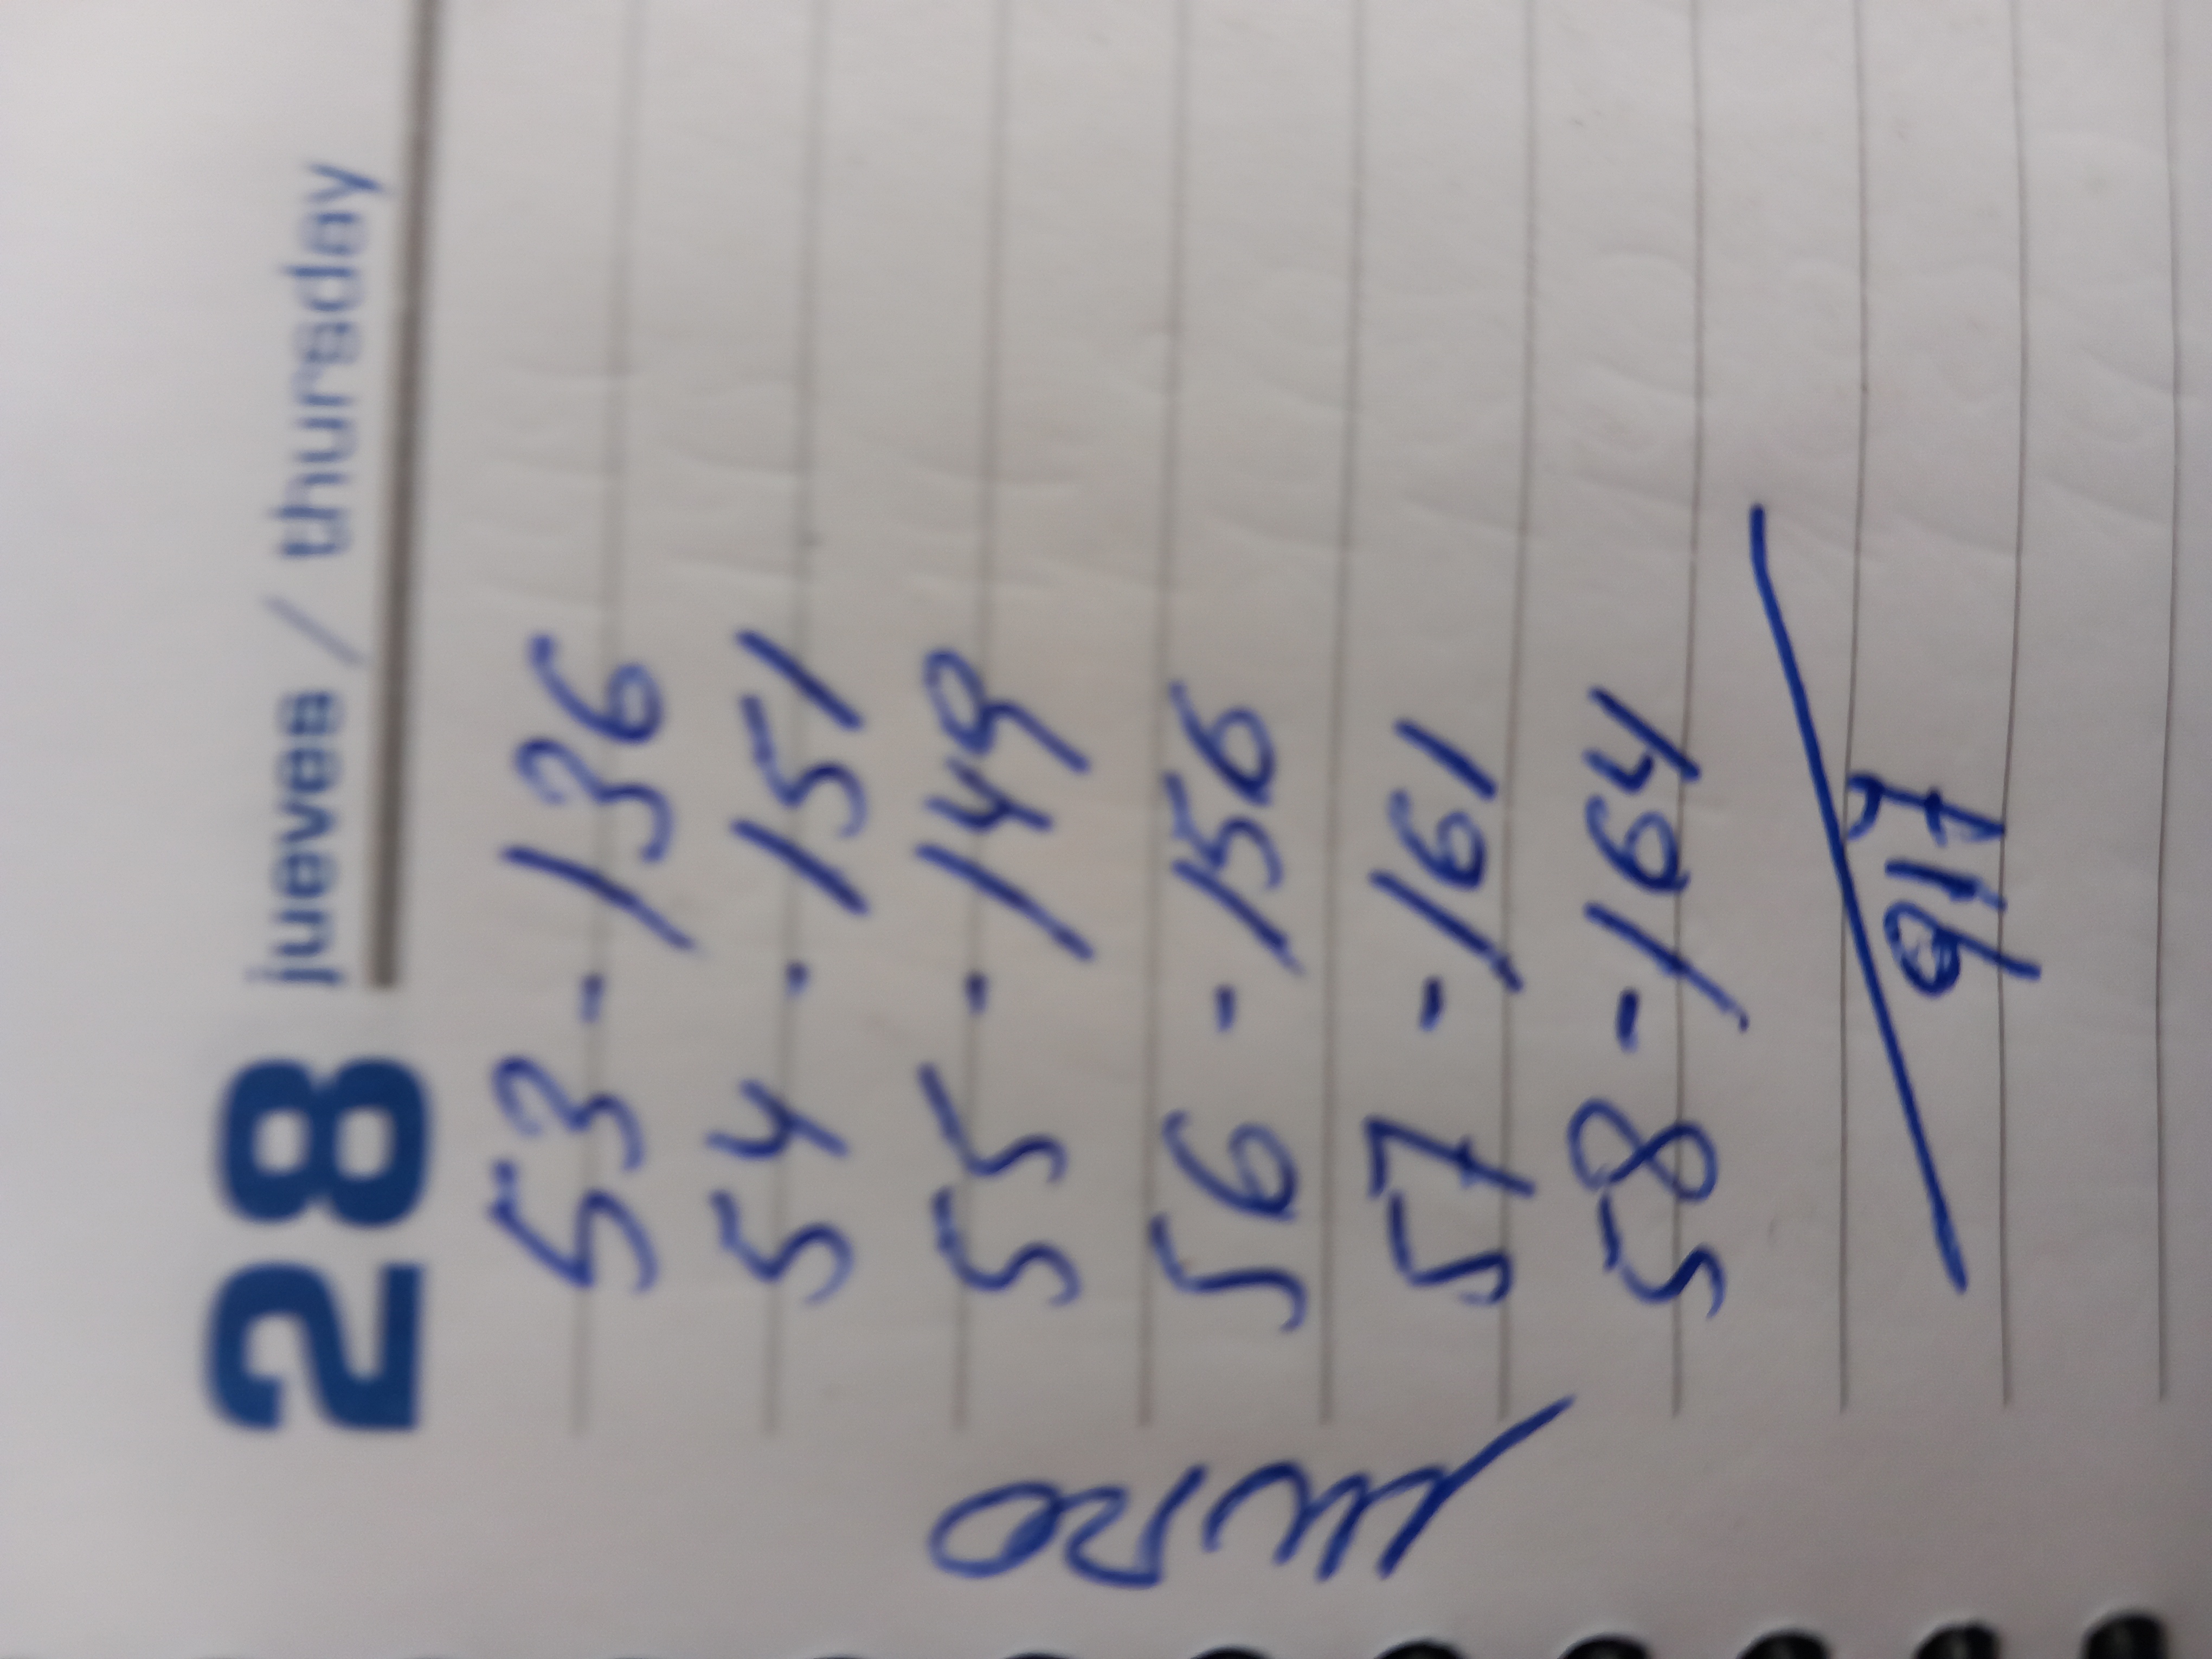 28 jueves / thursday
53 - 136
54 - 151
55 - 149
56 - 156
57 - 161
58 - 164
917